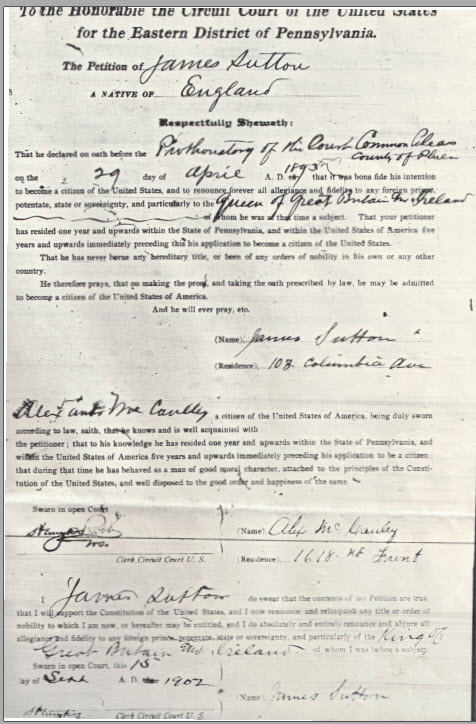 To the Honorable the Circuit Court of the United States
for the Eastern District of Pennsylvania.
The Petition of James Sutton
A NATIVE OF England
Respectfully Sheweth:
That he declared on oath before the Prothonotary of the Court Common Pleas
County of
on the 29 day of April A. D. 1893 that it was bona fide his intention
to become a citizen of the United States, and to renounce forever all allegiance and fidelity to any foreign prince,
potentate, state or sovereignty, and particularly to the Queen of Great Britain and Ireland
of whom he was at that time a subject. That your petitioner
has resided one year and upwards within the State of Pennsylvania, and within the United States of America five
years and upwards immediately preceding this his application to become a citizen of the United States.
That he has never borne any hereditary title, or been of any orders of nobility in his own or any other
country.
He therefore prays, that on making the proof, and taking the oath prescribed by law, he may be admitted
to become a citizen of the United States of America.
And he will ever pray, etc.
(Name), James Sutton
(Residence), 103 Columbia Ave
Alex McCaulley a citizen of the United States of America, being duly sworn
according to law, saith, that he knows and is well acquainted with
the petitioner; that to his knowledge he has resided one year and upwards within the State of Pennsylvania, and
within the United States of America five years and upwards immediately preceding his application to be a citizen;
that during that time he has behaved as a man of good moral character, attached to the principles of the Consti-
tution of the United States, and well disposed to the good order and happiness of the same.
Sworn in open Court
(Name) Alex McCauley
Clerk Circuit Court U. S.
(Residence), 1618 Nt Front
I James Sutton do swear that the contents of my Petition are true,
that I will support the Constitution of the United States, and I now renounce and relinquish any title or order of
nobility to which I am now, or hereafter may be entitled, and I do absolutely and entirely renounce and abjure all
allegiance and fidelity to any foreign prince, potentate, state or sovereignty, and particularly of the King of
Great Britain and Ireland of whom I was before a subject.
Sworn in open Court, this 15
day of Sept A. D. 1902
(Name) James Sutton
Clerk Circuit Court U. S.